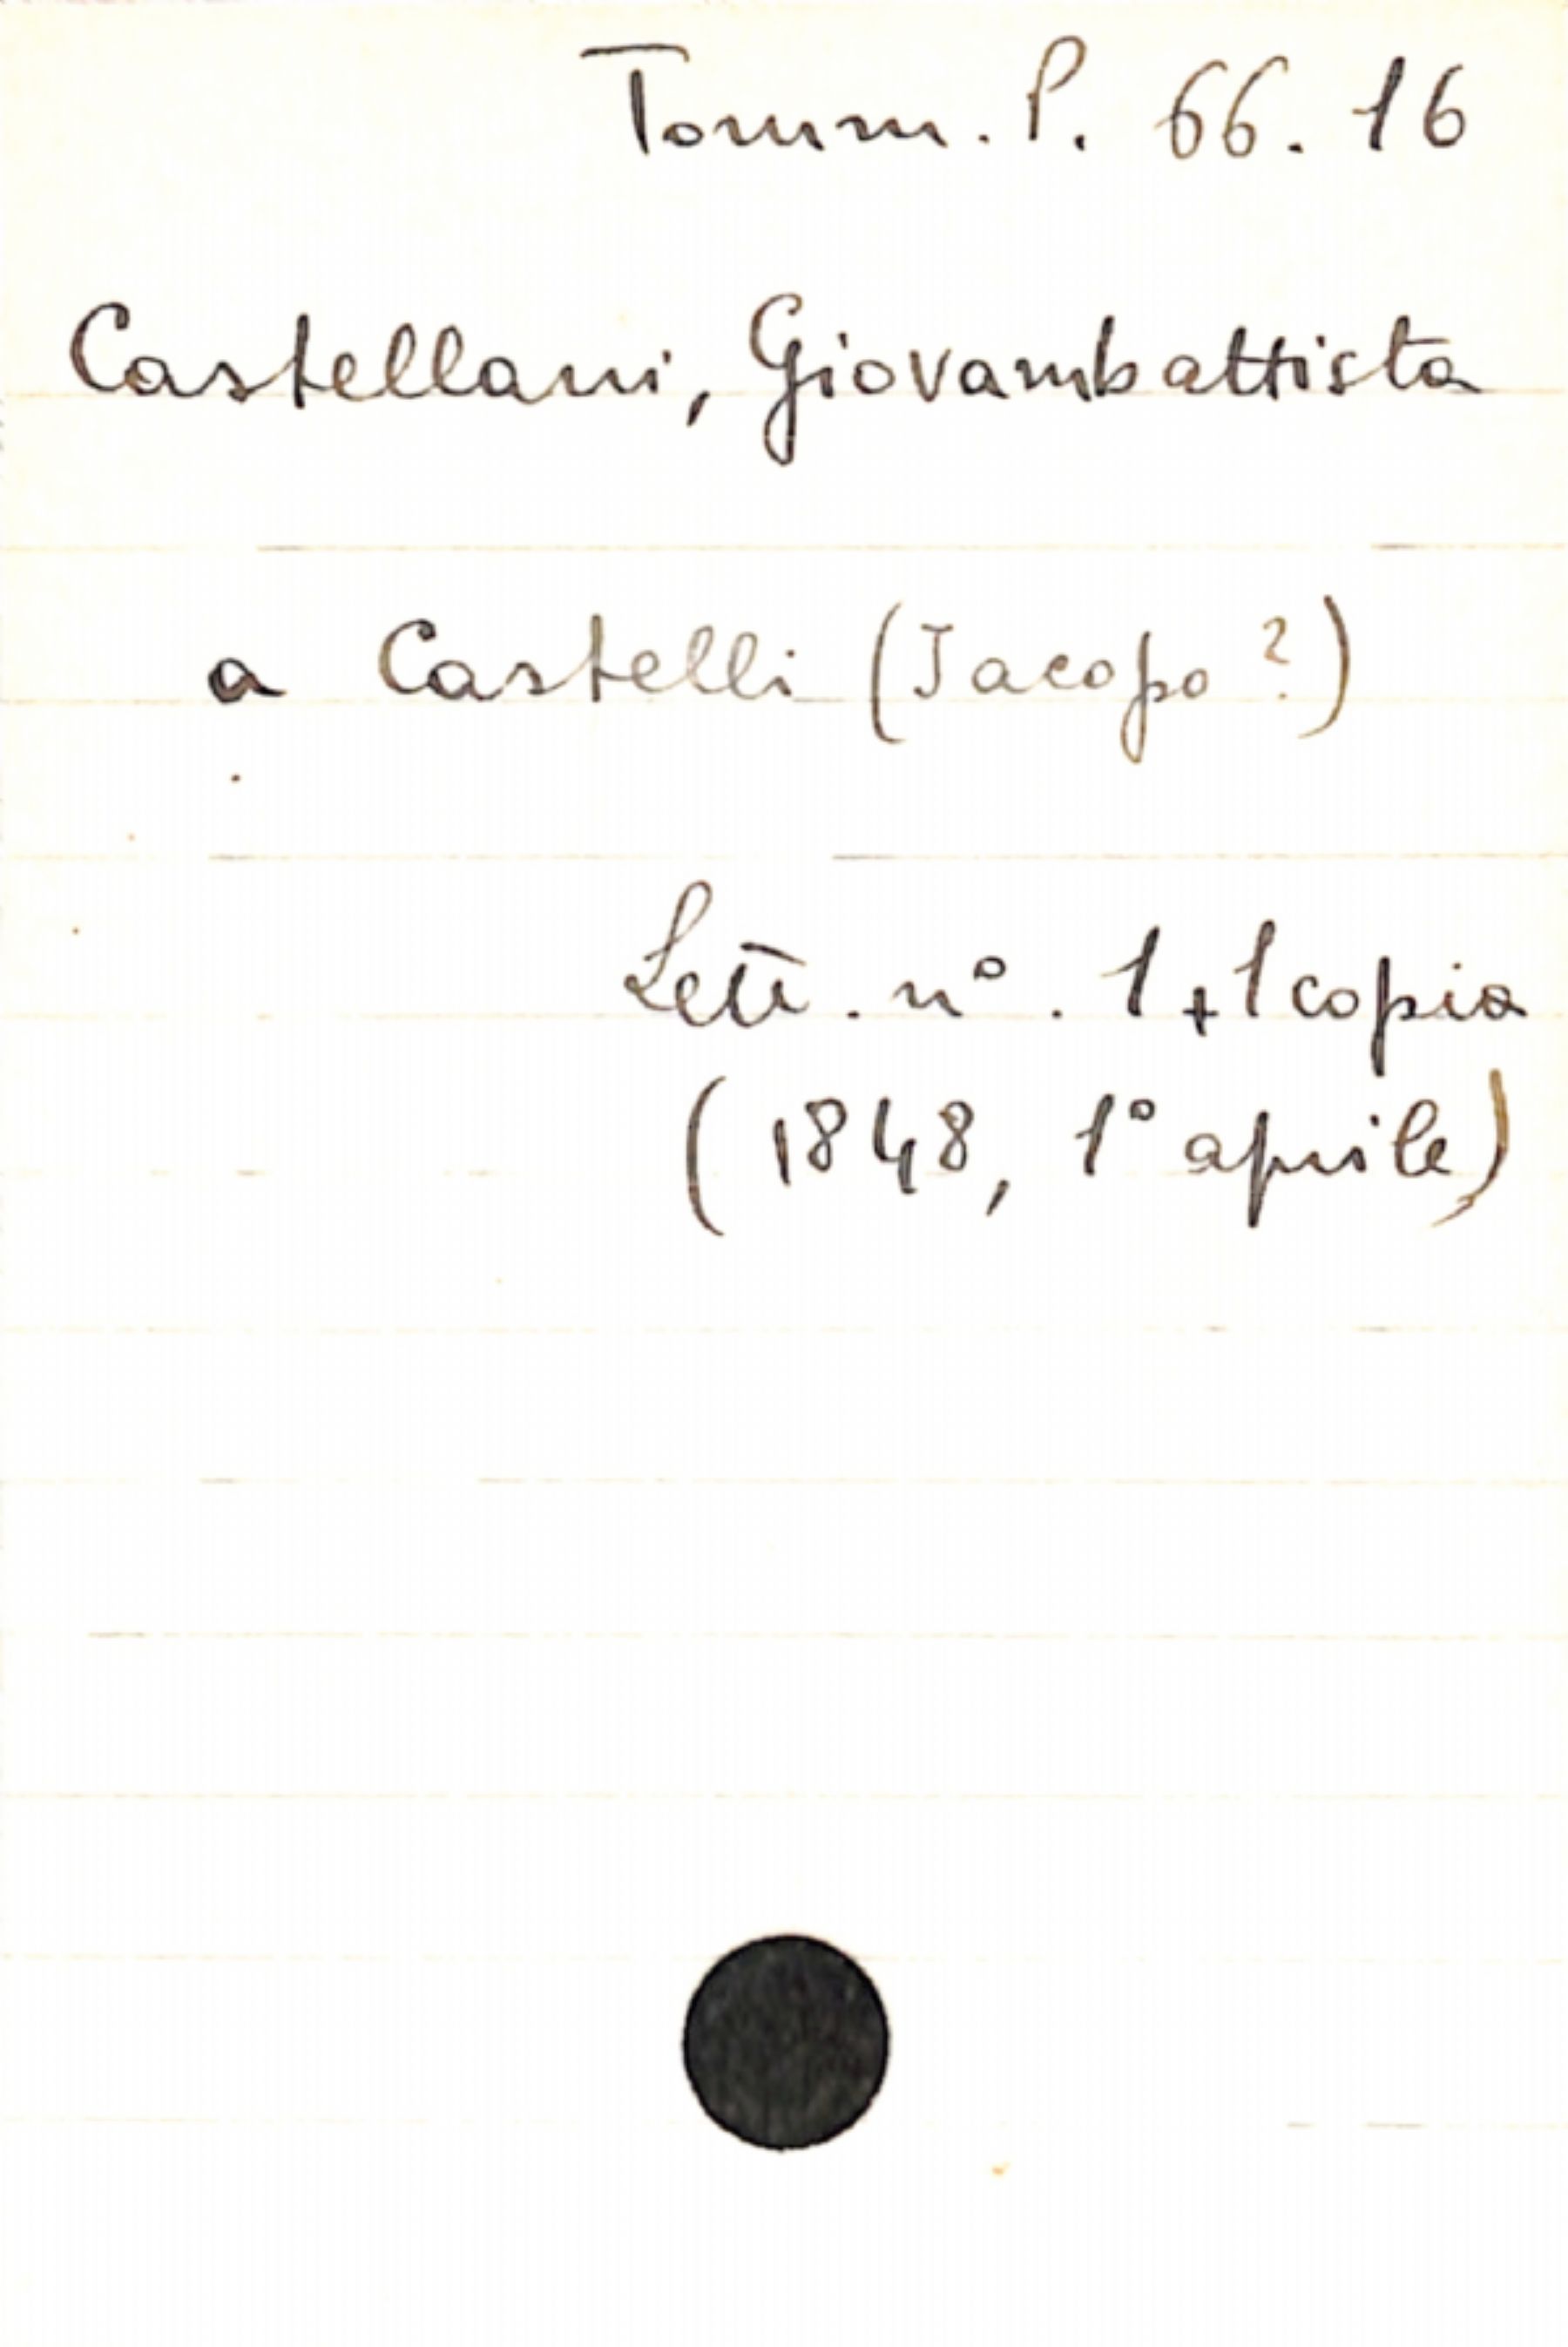 Tomm. P. 66. 16
Castellani, Giovambattista
a Castelli (Jacopo ?)
Lett. n°. 1 + 1 copia
(1848, 1° aprile)